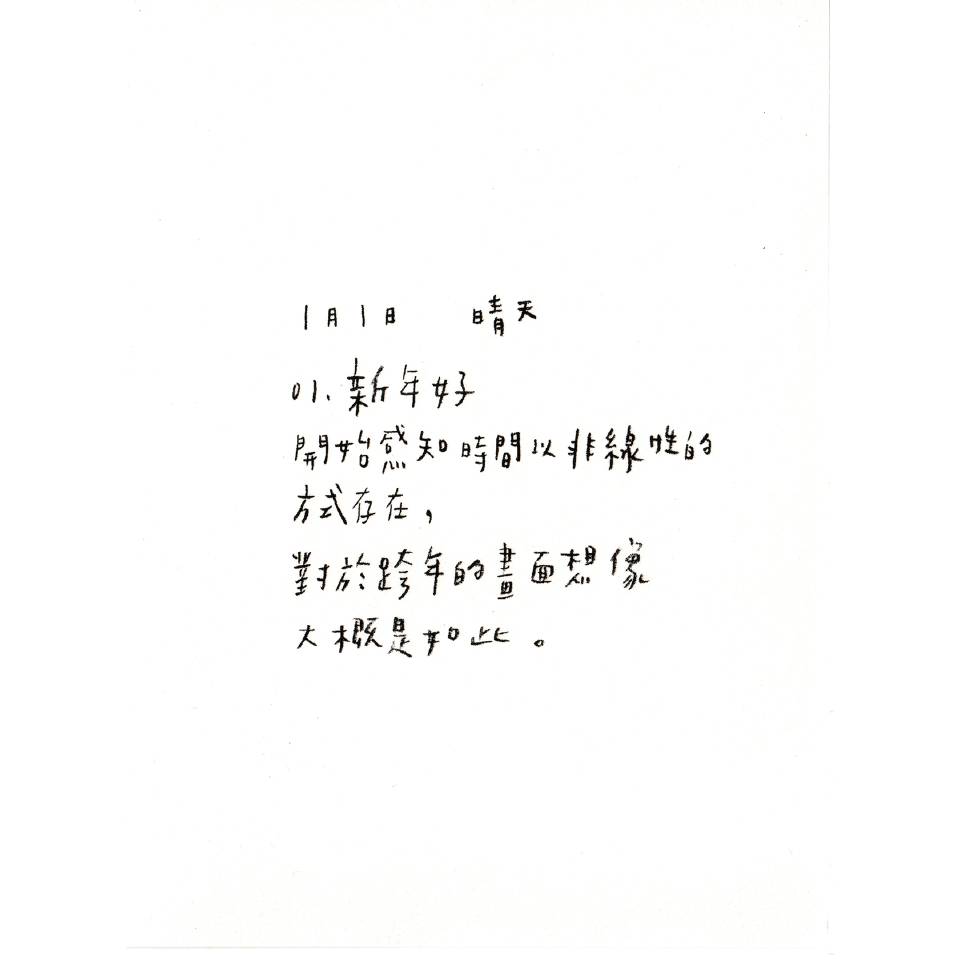 1月1日 晴天
01、新年好
開始感知時間以非線性的
方式存在，
對於跨年的畫面想像
大概是如此。